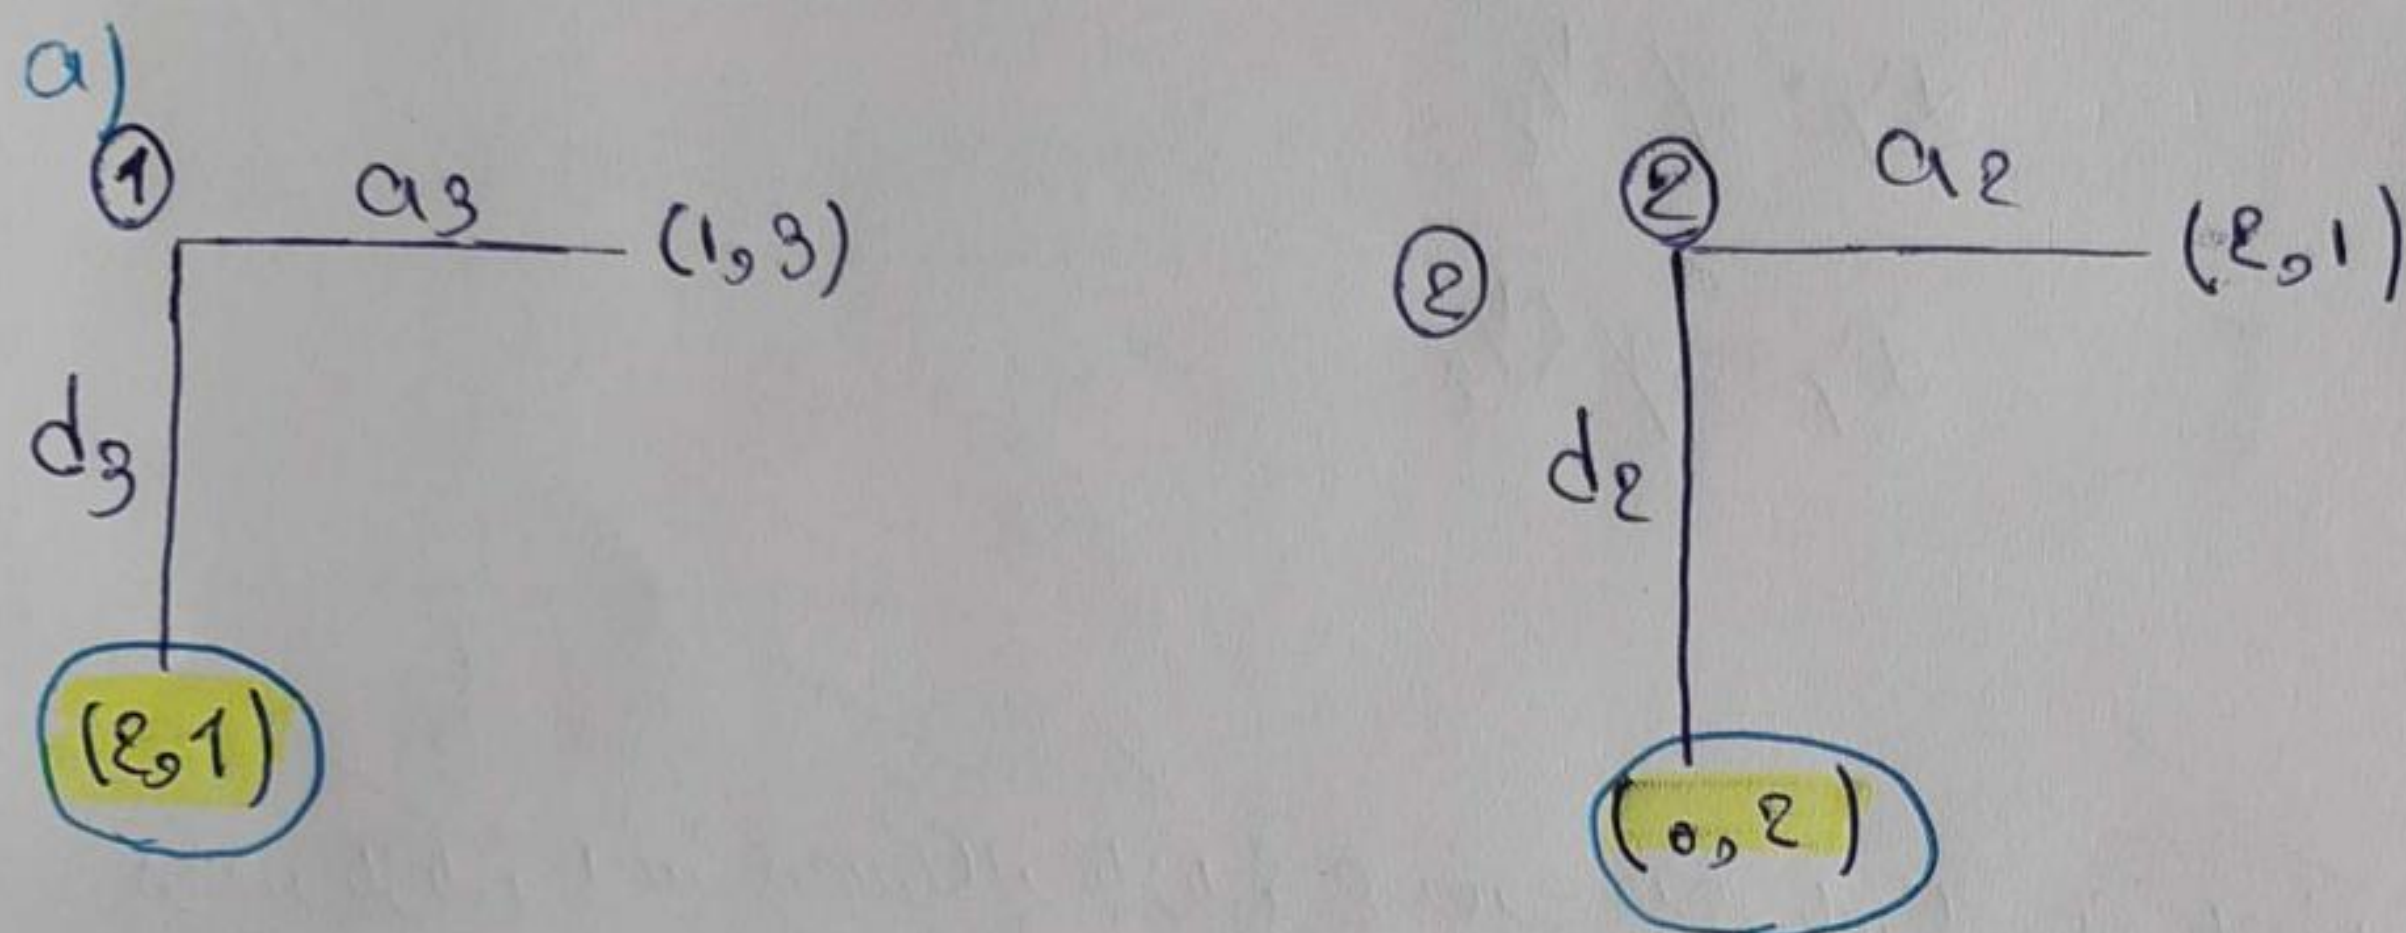 a)
① a3 (1,3)
d3
(2,1)
②
② a2 (2,1)
d2
(0,2)